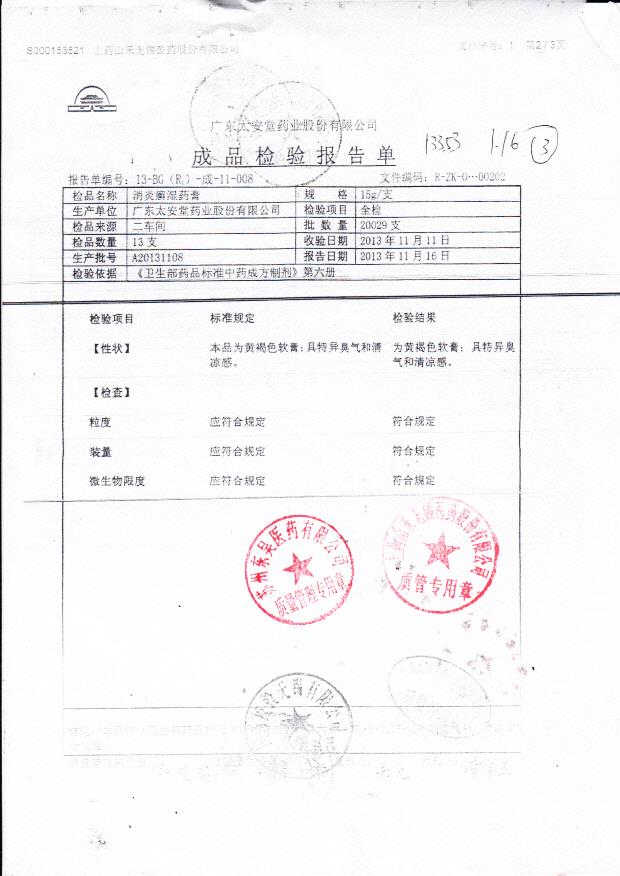 S000153521 上药山禾无锡医药股份有限公司 文件序号：1 第2/3页
广东太安堂药业股份有限公司
成品检验报告单
13353 1-16 ③
报告单编号：13-BG（R₁）-成-11-008 文件编码：R-ZK-0…00202
检品名称 消炎癣湿药膏 规 格 15g/支
生产单位 广东太安堂药业股份有限公司 检验项目 全检
检品来源 二车间 批 数 量 20029 支
检品数量 13 支 收验日期 2013 年 11 月 11 日
生产批号 A20131108 报告日期 2013 年 11 月 16 日
检验依据 《卫生部药品标准中药成方制剂》第六册
检验项目 标准规定 检验结果
【性状】 本品为黄褐色软膏；具特异臭气和清 为黄褐色软膏；具特异臭
凉感。 气和清凉感。
【检查】
粒度 应符合规定 符合规定
装量 应符合规定 符合规定
微生物限度 应符合规定 符合规定
苏州东吴医药有限公司
质量管理专用章
上药山禾无锡医药股份有限公司
质管专用章